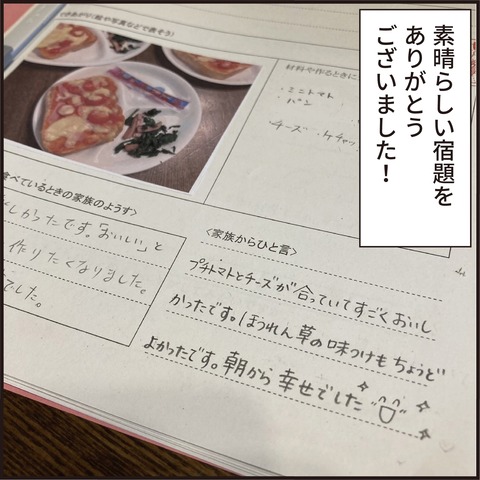 素晴らしい宿題を
ありがとう
ございました！
できあがり(絵や写真などで表そう)
材料や作るときに
ミニトマト
パン
・チーズ ・ケチャッ
食べているときの家族のようす〉
しかったです。「おいしい」と
作りたくなりました。
でした。
〈家族からひと言〉
プチトマトとチーズが合っていてすごくおいし
かったです。ほうれん草の味つけもちょうど
よかったです。朝から幸せでした